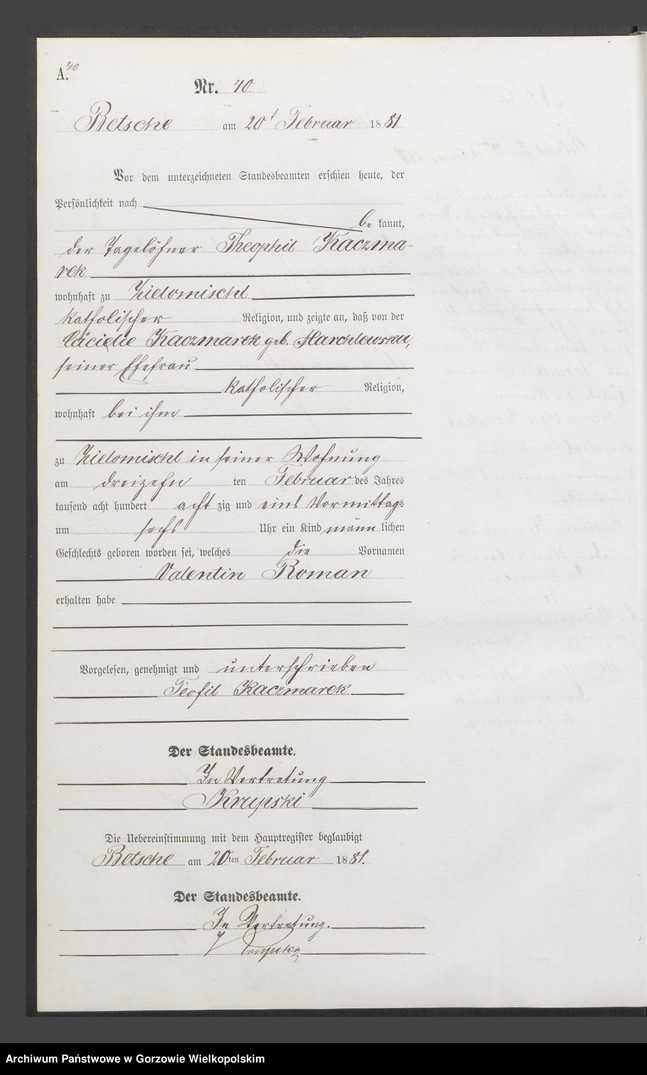 A. 40
Nr. 40
Betsche am 20t Februar 1881
Vor dem unterzeichneten Standesbeamten erschien heute, der
Persönlichkeit nach
bekannt,
der Tagelöhner Theophil Kaczma-
rek
wohnhaft zu Zielomischel
katholischer Religion, und zeigte an, daß von der
Cäcielie Kaczmarek geb.
seiner Ehefrau
katholischer Religion,
wohnhaft bei ihm
zu Zielomischel in seiner Wohnung
am dreizehn ten Februar des Jahres
tausend acht hundert acht zig und eins Vormittags
um sechs Uhr ein Kind männlichen
Geschlechts geboren worden sei, welches die Vornamen
Valentin Roman
erhalten habe
Vorgelesen, genehmigt und unterschrieben
Teofil Kaczmarek
Der Standesbeamte.
In Vertretung
Krupski
Die Uebereinstimmung mit dem Hauptregister beglaubigt
Betsche am 20ten Februar 1881.
Der Standesbeamte.
In Vertretung.
Krupski
Archiwum Państwowe w Gorzowie Wielkopolskim